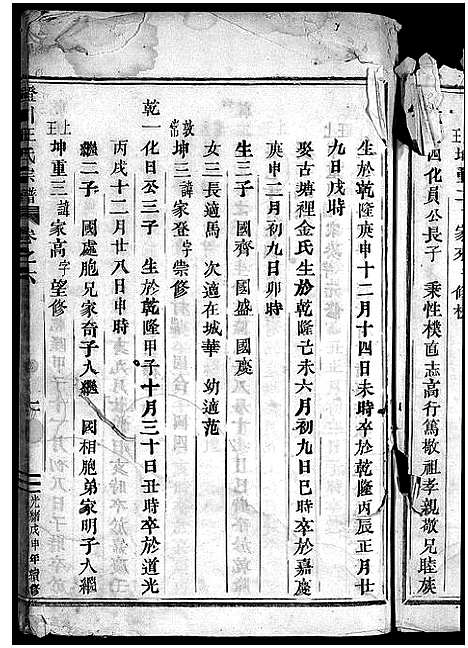 四化員公長子　秉性樸直志高行篤敬祖孝親敬兄睦族
生於乾隆庚申十二月十四日未時卒於乾隆丙辰正月廿
九日戌時
娶古塘裡金氏生於乾隆己未六月初九日巳時卒於嘉慶
庚申二月初九日卯時
生三子　國齊　國盛　國慶
女三長適馬　次適在城華　幼適范
敦常坤三諱家登字崇修
乾一化日公三子　生於乾隆甲子十月三十日丑時卒於道光
丙戌十二月廿八日申時
繼二子　國處胞兄家奇子入繼　國相胞弟家明子入繼
上王坤重三諱家高字望修
王氏宗譜　卷之六
光緒戊申年續修